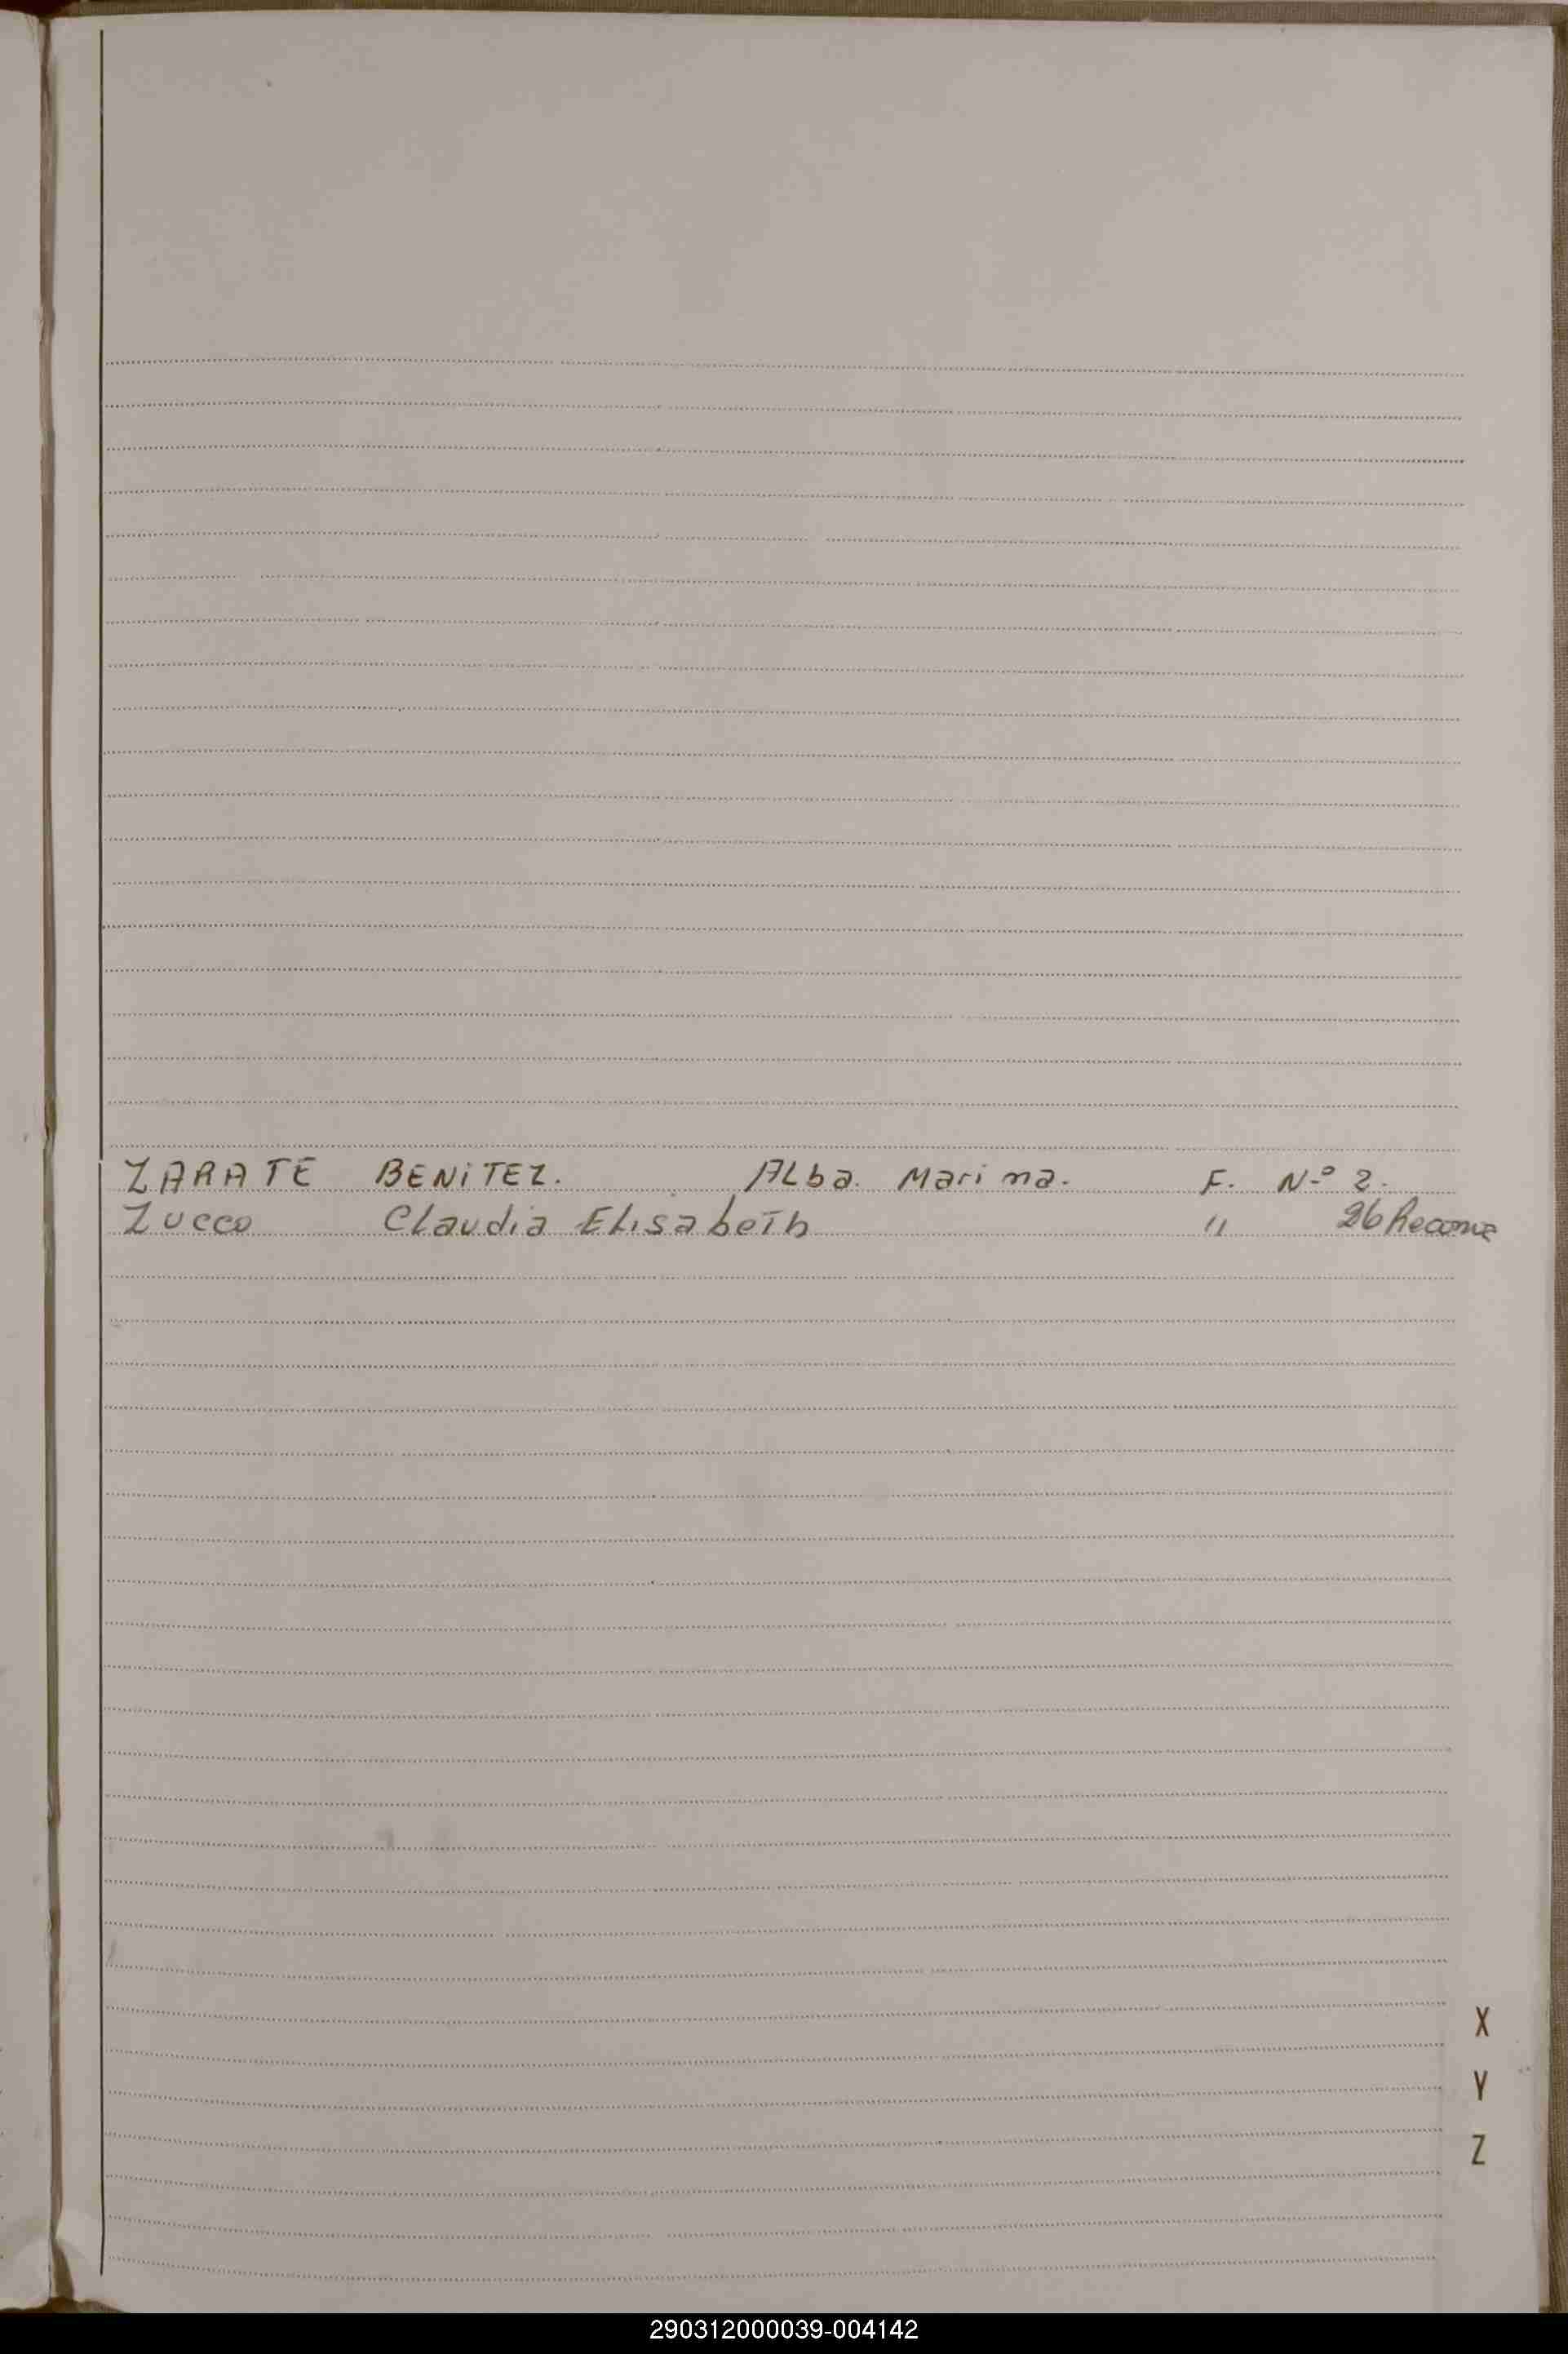 ZARATE BENiTEZ. ALba. Marina. F. N-º 2.
Zucco Claudia Elisabeth " 26 Reconoc
X
Y
Z
290312000039-004142